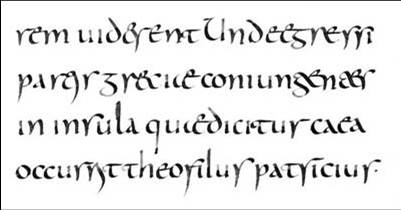 rem uiderent Unde egressi
partes greciae coniungentes
in insula quae dicitur caea
occurrit theofilus patricius·